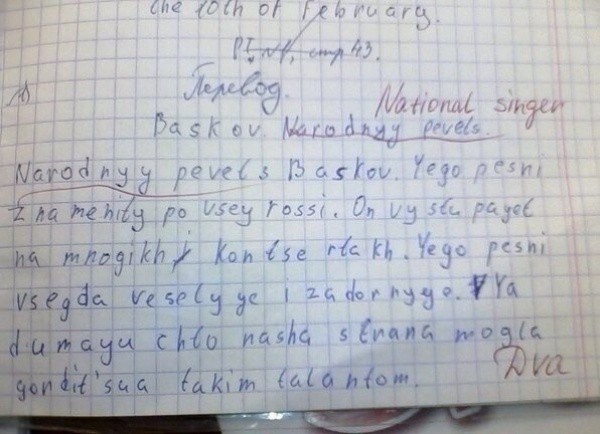 the 10th of February.
P I, №1, стр 43.
1)
Перевод.
National singer
Baskov. Narodnyy pevels.
Narodnyy pevels Baskov. Yego pesni
znamenity po vsey rossi. On vystupayet
na mnogikh kontsertakh. Yego pesni
vsegda veselyye i zadornyye. Ya
dumayu chto nasha strana mogla
gordit'sua takim talantom.
Dva